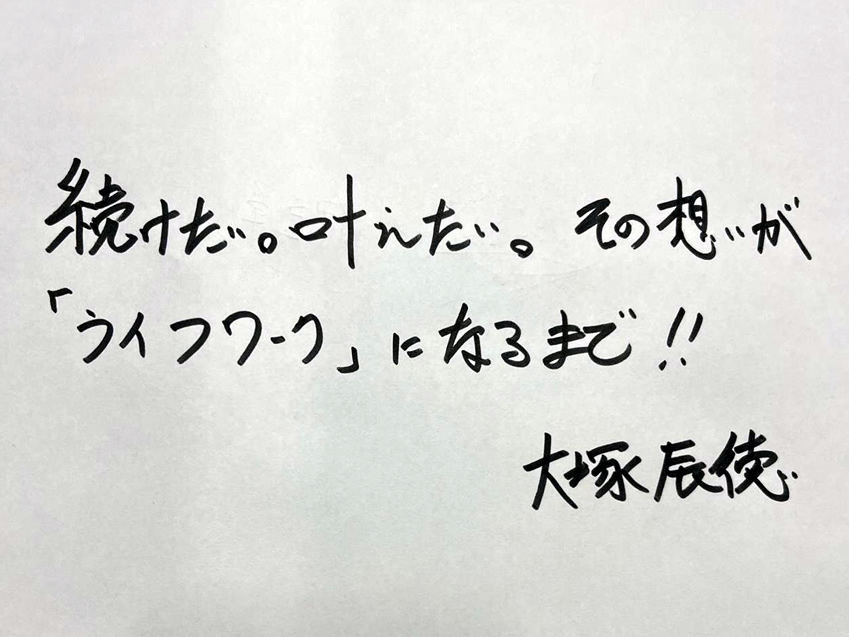 続けたい。叶えたい。その想いが
「ライフワーク」になるまで!!
大塚辰徳